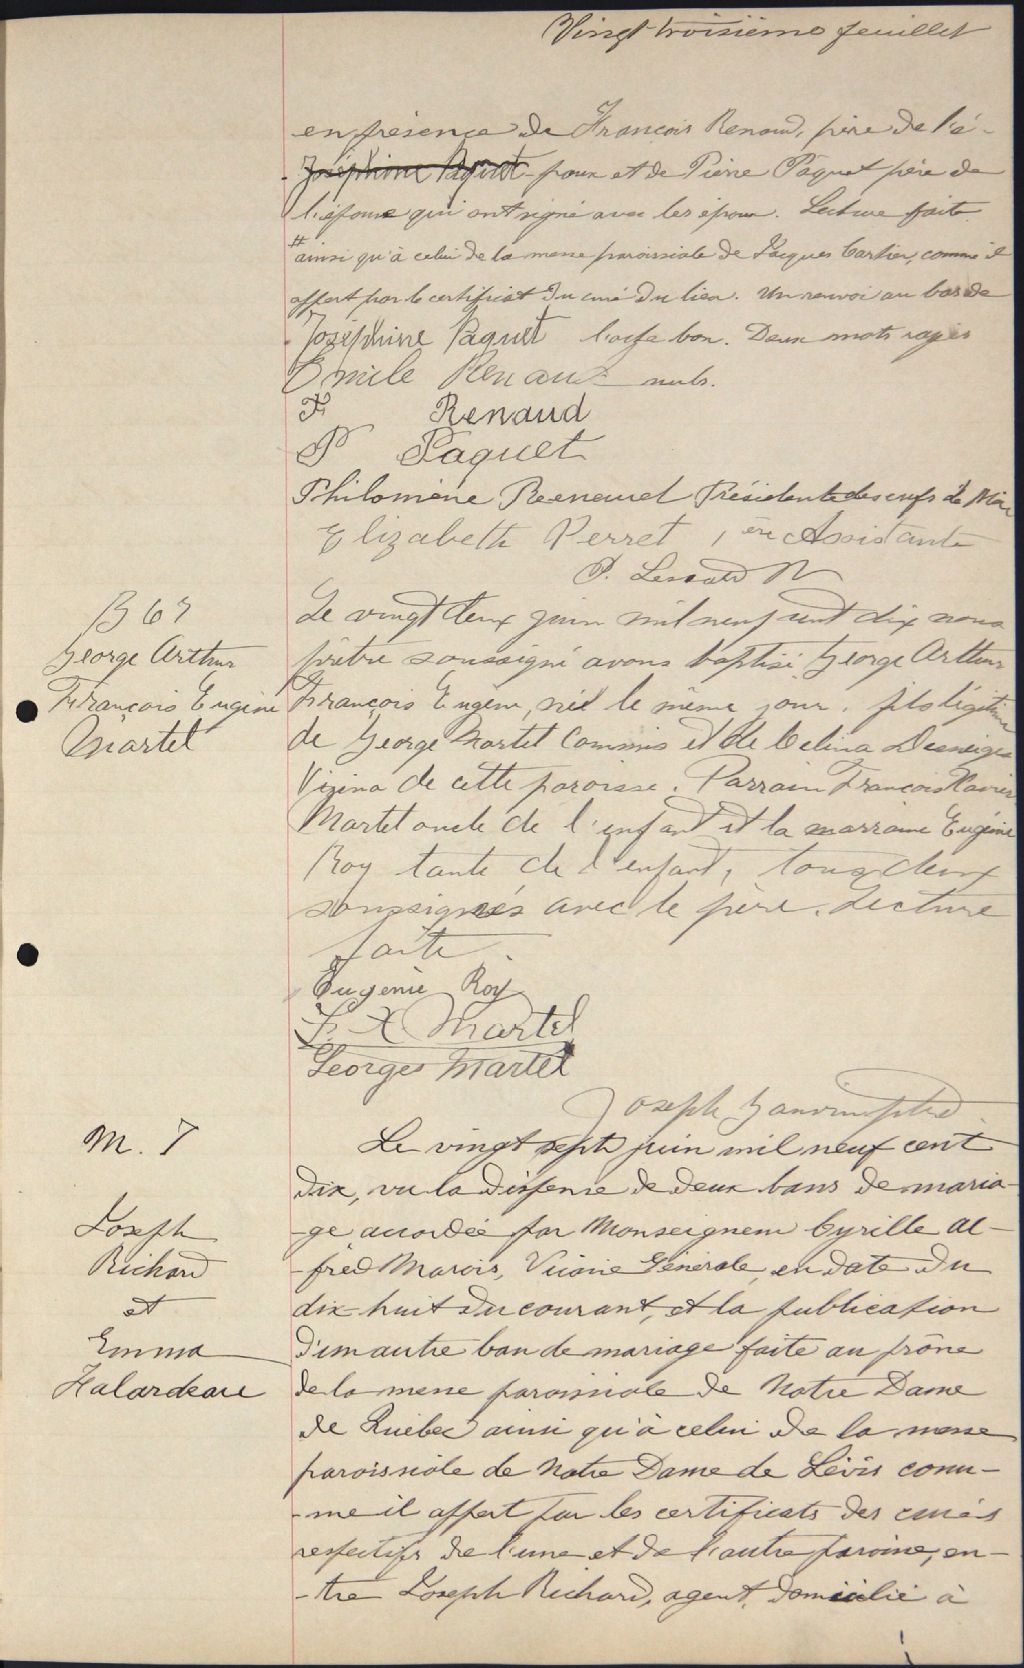 Vingt troisième feuillet
en présence de François Renaud, père de l'é-
Joséphine Paquet -poux et de Pierre Paquet père de
l'épouse qui ont signé avec les époux. Lecture faite
# ainsi qu'à celui de la messe paroissiale de Jacques Cartier, comme il
appert par le certificat du curé du lieu. Un renvoi au bas de
Joséphine Paquet l'acte bon. Deux mots rayés
Emile Renaud nuls.
F Renaud
P Paquet
Philomène Renaud Présidente des enfs de Marie
Elizabeth Perret 1 ère Assistante
P. Lessard
B 67
George Arthur
François Eugène
Martel
Le vingt deux juin mil neuf cent dix nous
prêtre soussigné avons baptisé George Arthur
François Eugène, né le même jour, fils légitime
de George Martel Commis et de Celina Desneiges
Vézina de cette paroisse. Parrain François Xavier
Martel oncle de l'enfant et la marraine Eugénie
Roy tante de l'enfant, tous deux
soussignés avec le père. Lecture
faite.
Eugénie Roy
F. X Martel
Georges Martel
Joseph
M. 7
Joseph
Richard
et
Emma
Falardeau
Le vingt sept juin mil neuf cent
dix, vu la dispense de deux bans de maria-
-ge accordée par Monseigneur Cyrille Al-
-fred Marois, Vicaire Général, en date du
dix-huit du courant, et la publication
d'un autre ban de mariage faite au prône
de la messe paroissiale de Notre Dame
de Québec ainsi qu'à celui de la messe
paroissiale de Notre Dame de Lévis com-
-me il appert par les certificats des curés
respectifs de l'une et de l'autre paroisse, en-
-tre Joseph Richard, agent, domicilié à